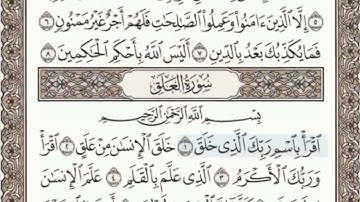 ٥ إِلَّا ٱلَّذِينَ ءَامَنُوا۟ وَعَمِلُوا۟ ٱلصَّـٰلِحَـٰتِ فَلَهُمْ أَجْرٌ غَيْرُ مَمْنُونٍ ٦
فَمَا يُكَذِّبُكَ بَعْدُ بِٱلدِّينِ ٧ أَلَيْسَ ٱللَّهُ بِأَحْكَمِ ٱلْحَـٰكِمِينَ ٨
سُورَةُ ٱلْعَلَقِ
بِسْمِ ٱللَّهِ ٱلرَّحْمَـٰنِ ٱلرَّحِيمِ
ٱقْرَأْ بِٱسْمِ رَبِّكَ ٱلَّذِى خَلَقَ ١ خَلَقَ ٱلْإِنسَـٰنَ مِنْ عَلَقٍ ٢ ٱقْرَأْ
وَرَبُّكَ ٱلْأَكْرَمُ ٣ ٱلَّذِى عَلَّمَ بِٱلْقَلَمِ ٤ عَلَّمَ ٱلْإِنسَـٰنَ